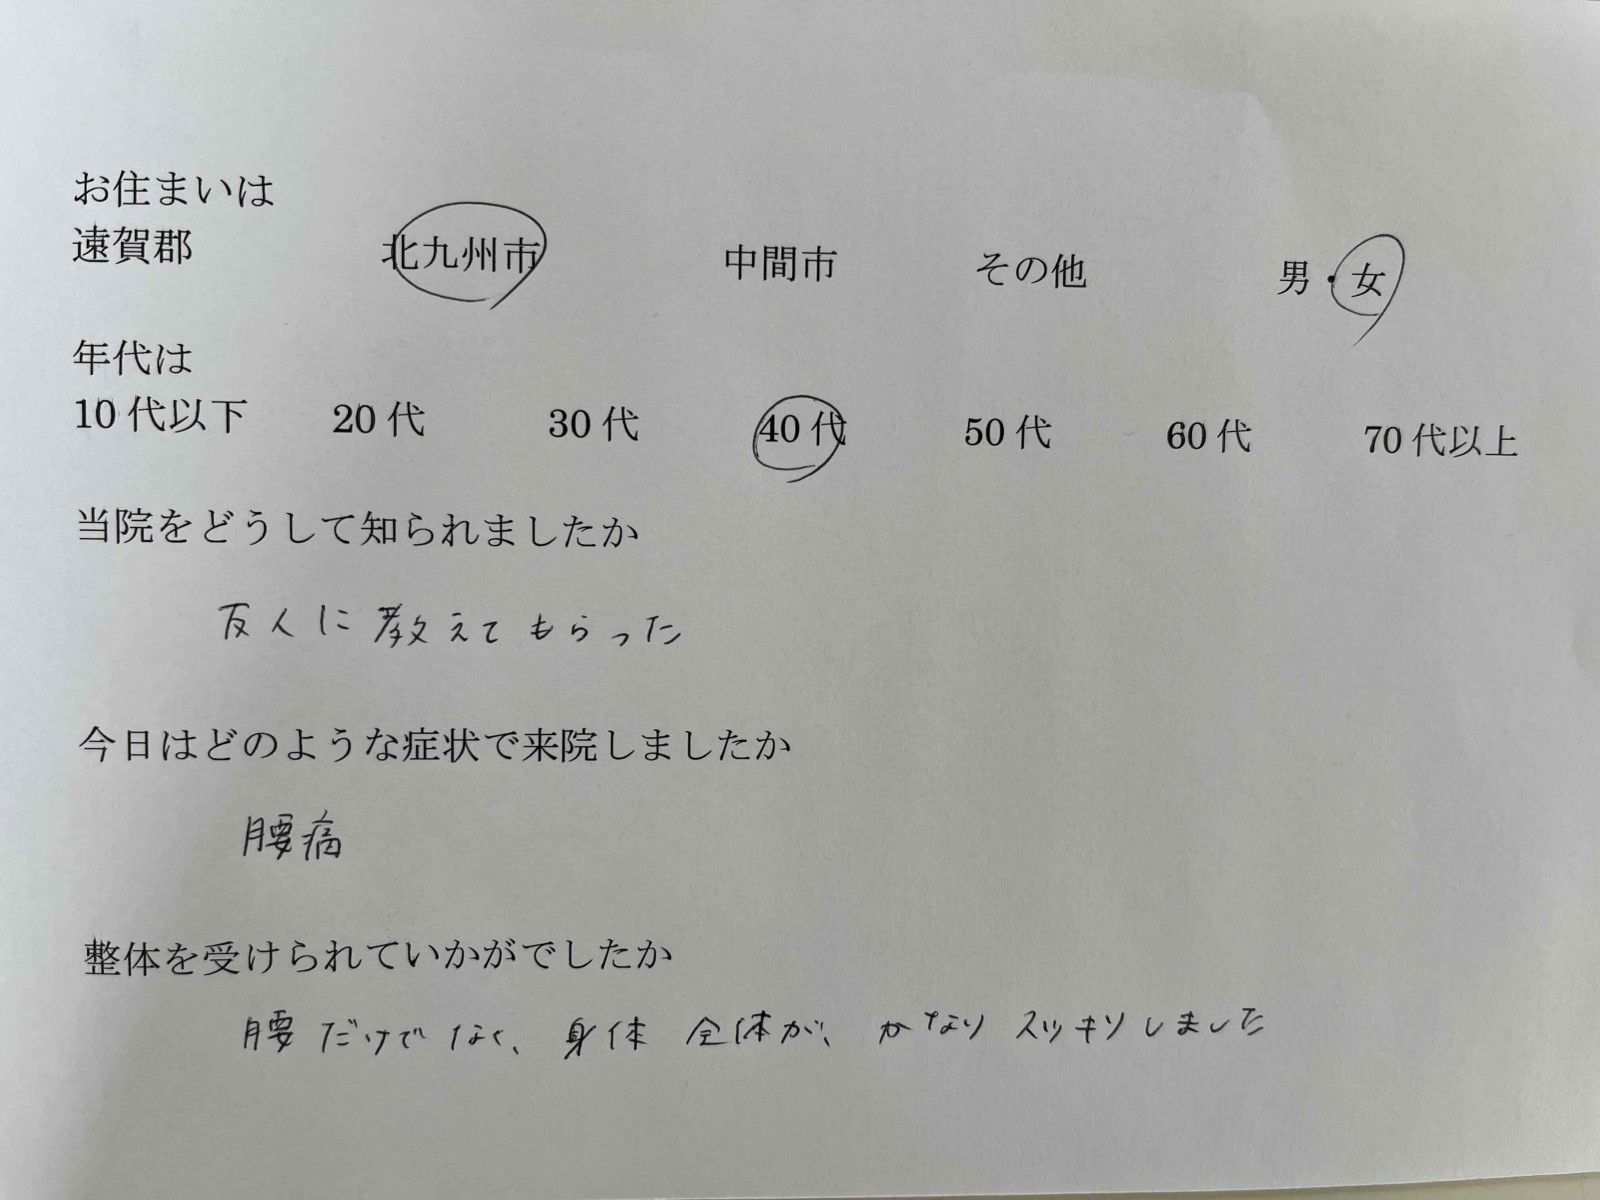 お住まいは
遠賀郡 北九州市 中間市 その他 男・女
年代は
10代以下 20代 30代 40代 50代 60代 70代以上
当院をどうして知られましたか
友人に教えてもらった
今日はどのような症状で来院しましたか
腰痛
整体を受けられていかがでしたか
腰だけでなく、身体全体が、かなりスッキリしました